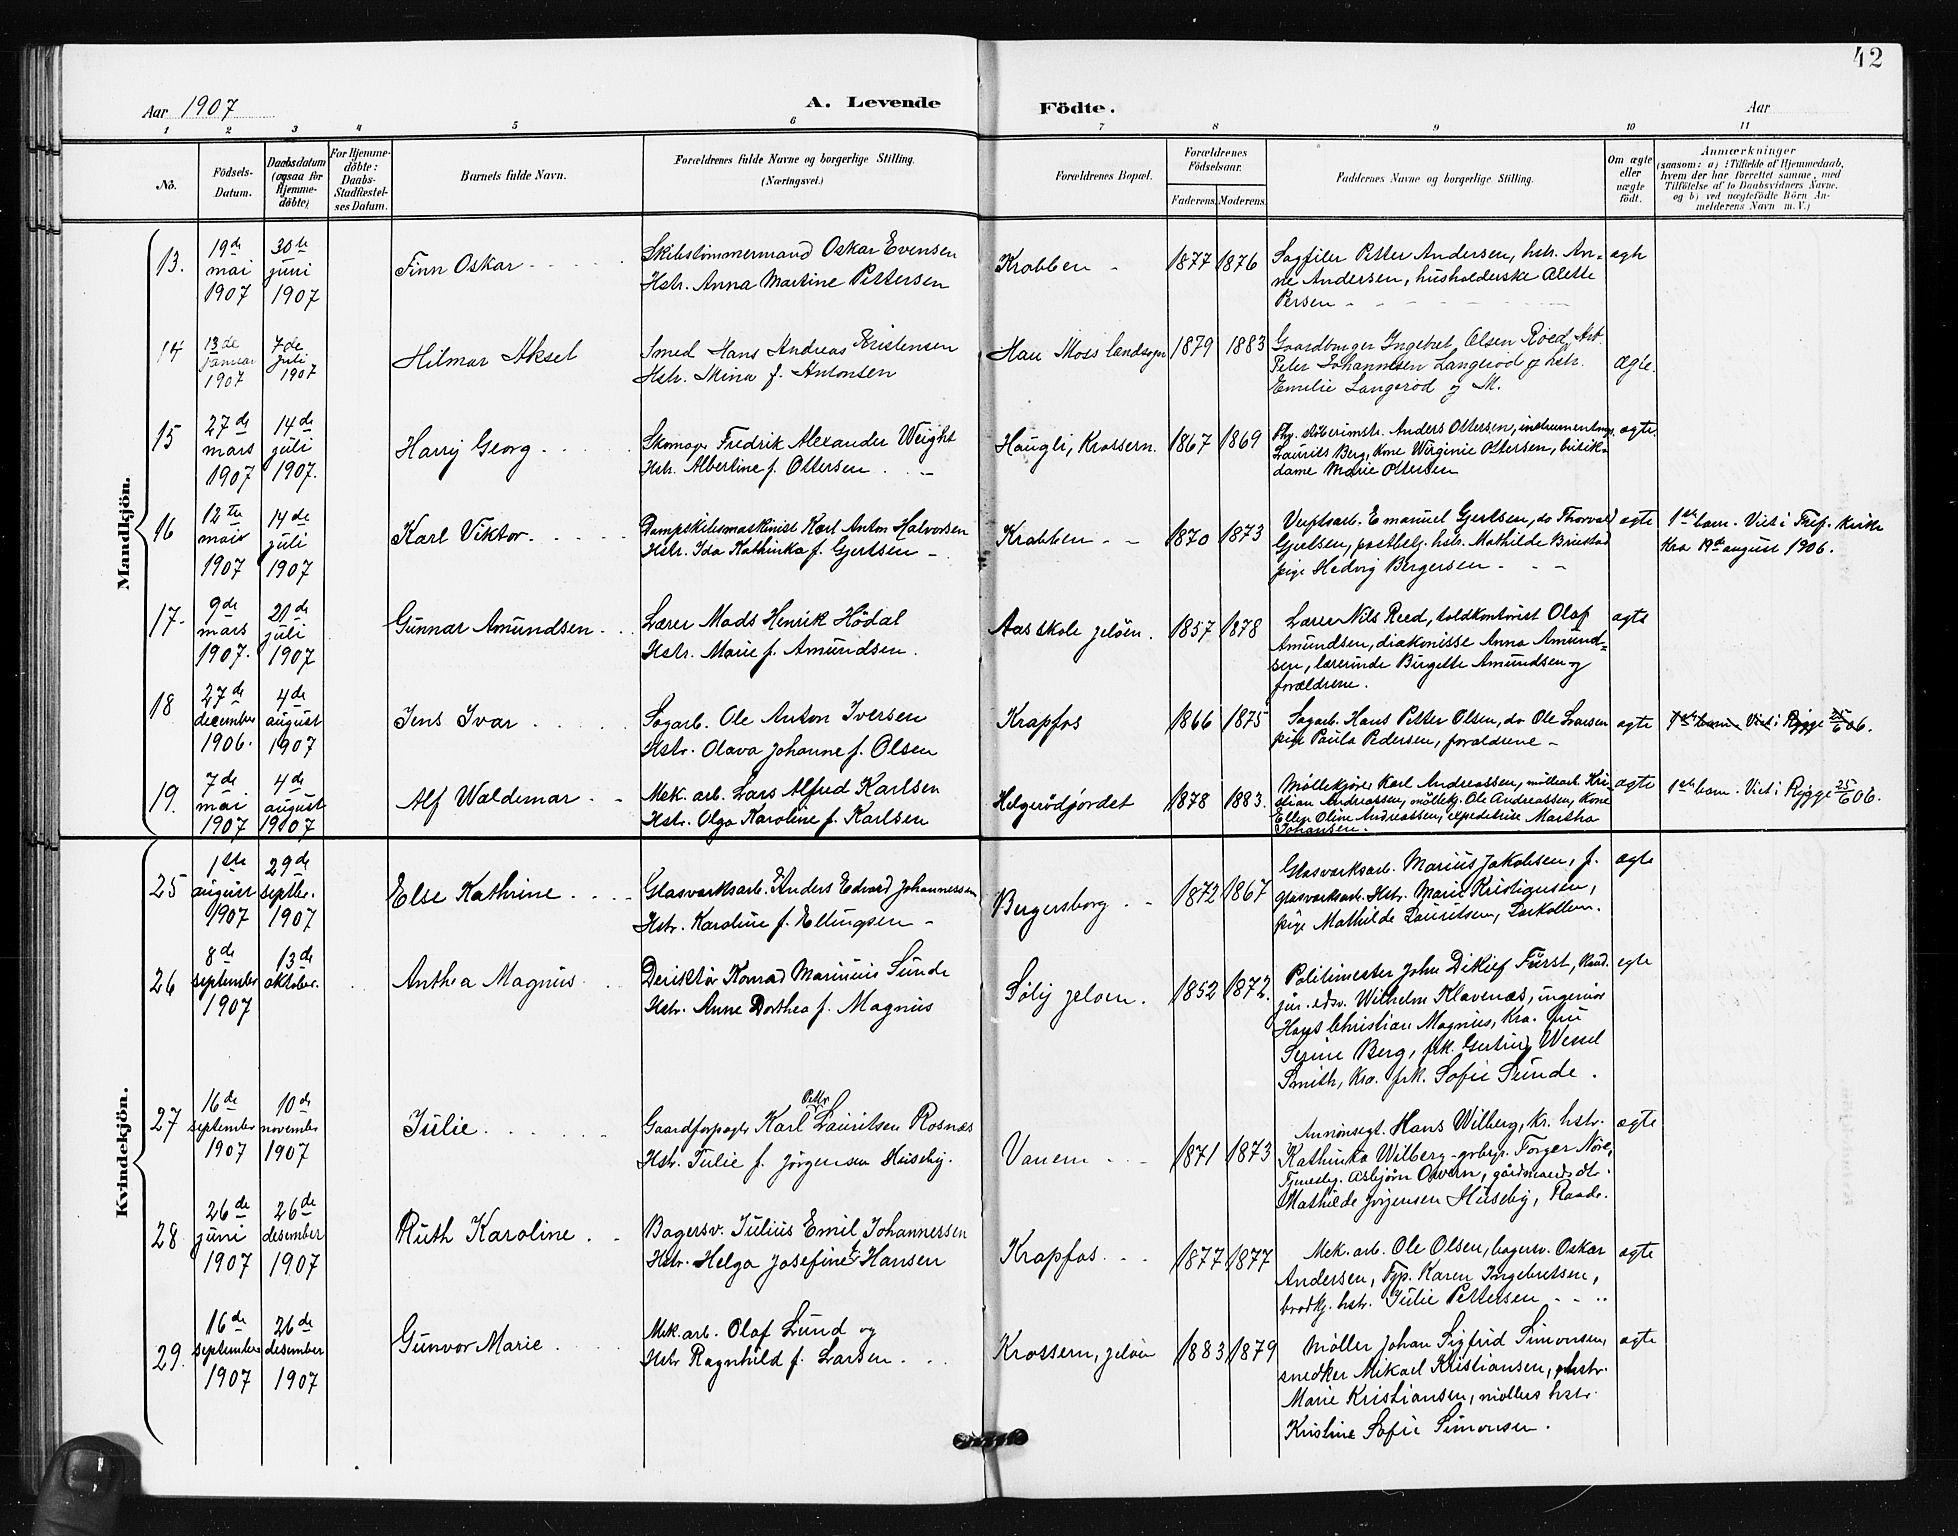 42
Aar 1907
A. Levende
Födte.
Aar
1 2 3 4 5 6 7 8 9 10 11
No.
Födsels-
Datum.
Daabsdatum
(ogsaa for
Hjemme-
döbte)
For Hjemme-
döbte:
Daabs-
Stadfæstel-
ses Datum.
Barnets fulde Navn.
Forældrenes fulde Navne og borgerlige Stilling.
(Næringsvei.)
Forældrenes Bopæl.
Forældrenes
Födselsaar.
Faderens.
Moderens.
Faddernes Navne og borgerlige Stilling.
Om ægte
eller
uægte
födt.
Anmærkninger
(saasom: a) i Tilfælde af Hjemmedaab,
hvem der har forrettet samme, med
Tilföielse af to Daabsvidners Navne,
og b) ved uægtefödte Börn An-
melderens Navn m. V.)
Mandkjön.
13.
19de
mai
1907
30te
juni
1907
Finn Oskar
Skibstömmermand Oskar Evensen
Hstr. Anna Martine Pettersen
Krabben
1877
1876
Sagfiler Petter Andersen, hstr. An-
ne Andersen, husholderske Alette
Persen
agte
14
13de
januar
1907
7de
juli
1907
Hilmar Aksel
Smed Hans Andreas Kristensen
Hstr. Mina f. Antonsen
Moss landsogn
1879
1883
Gaardbruger Ingebret Olsen Röed, Arb.
Peter Johannesen Langeröd og hstr.
Emilie Langeröd og M.
Ægte.
15
27de
mars
1907
14de
juli
1907.
Harry Georg
Skomag. Fredrik Alexander Weight
Hstr. Albertine f. Ottersen
Haugli, Krossern.
1867
1869
Anders Ottersen,
Laurits Berg, kone Wirginie Ottersen, butik-
dame Marie Ottersen
agte.
16
12te
mai
1907
14de
juli
1907
Karl Viktor
Dampskibsmaskinist Karl Anton Halvorsen
Hstr. Ida Kathinka f. Gjertsen
Krabben
1870
1873
Verftsarb. Emanuel Gjertsen, do Thorvald
Gjertsen, postbetj. hstr. Mathilde
pige Hedvig Bergersen
agte
1ste barn. Viet i Tref. kirke
Kra 19de august 1906.
17.
9de
mars
1907.
20de
juli
1907
Gunnar Amundsen
Lærer Mads Henrik Hödal
Hstr. Marie f. Amundsen.
Aas skole jelöen.
1857
1878
Lærer Nils Reed, toldkontorist Olaf
Amundsen, diakonisse Anna Amund-
sen, lærerinde Birgette Amundsen og
forældrene.
agte
18
27de
december
1906.
4de
august
1907
Jens Ivar
Sagarb. Ole Anton Iversen
Hstr. Olava Johanne f. Olsen
Krapfos
1866
1875
Sagarb. Hans Petter Olsen, do Ole Larsen
pige Paula Pedersen, forældrene
agte
1ste barn. Viet i Rygge 25/6 06.
19.
7de
mai
1907
4de
august
1907
Alf Waldemar
Mek. arb. Lars Alfred Karlsen
Hstr. Olga Karoline f. Karlsen
Helgerödjordet
1878
1883.
Möllekjörer Karl Andreassen, möllearb. Kri-
stian Andreassen, möllekj. Ole Andreassen, Kone
Ellen Oline Andreassen, expeditrise Martha
Johansen.
agte
1ste barn. Viet i Rygge 25/6 06.
Kvindekjön.
25
1ste
august
1907
29de
septbr.
1907
Else Kathrine
Glasværksarb. Anders Edvard Johannessen
Hstr. Karoline f. Ellingsen
Bergersborg
1872
1867
Glasværksarb. Marius Jakobsen, f.
glasværksarb. Hstr. Marie Kristiansen,
pige Mathilde Lauritsen, Larkollen.
agte
26
8de
september
1907
13de
oktober.
Anthea Magnus
Derektör Konrad Marinius Sunde
Hstr. Anne Dorthea f. Magnus
Söly jelöen.
1852
1872.
Politimester John Ditlef Fürst, Kand.
jur. edsv. Wilhelm Klavenæs, ingeniör
Hans Christian Magnus, Kra. fru
Serine Berg, frk. Gertrud Wessel
Smith, Kra. frk. Sofie Sunde.
egte
27
16de
september
1907
10de
november
1907
Julie
Gaardforpagter Karl Petter Lauritsen Rosnæs
Hstr. Julie f. Jörgensen Huseby.
Vanem
1871
1873
Hans Wilberg, kr. hstr.
Kathinka Wilberg grbr. Torger Nöre,
Asbjörn gårdmands dtr.
Mathilde Jörgensen Huseby, Raade.
agte
28
26de
juni
1907
26de
desember
1907
Ruth Karoline
Bagersv. Julius Emil Johannessen
Hstr. Helga Josefine f. Hansen
Krapfos
1877
1877
Mek. arb. Ole Olsen, bagersv. Oskar
Andersen, Typ. Karen Ingebretsen,
brödkj. hstr. Julie Pettersen
agte
29.
16de
september
1907
26de
desember
1907
Gunvor Marie
Mek. arb. Olaf Lund og
Hstr Ragnhild f. Larsen
Krossern, jelöen
1883
1879
Möller Johan Sigfrid Simonsen,
snedker Mikael Kristiansen, hstr.
Marie Kristiansen, möllers hstr.
Kristine Sofie Simonsen.
agte